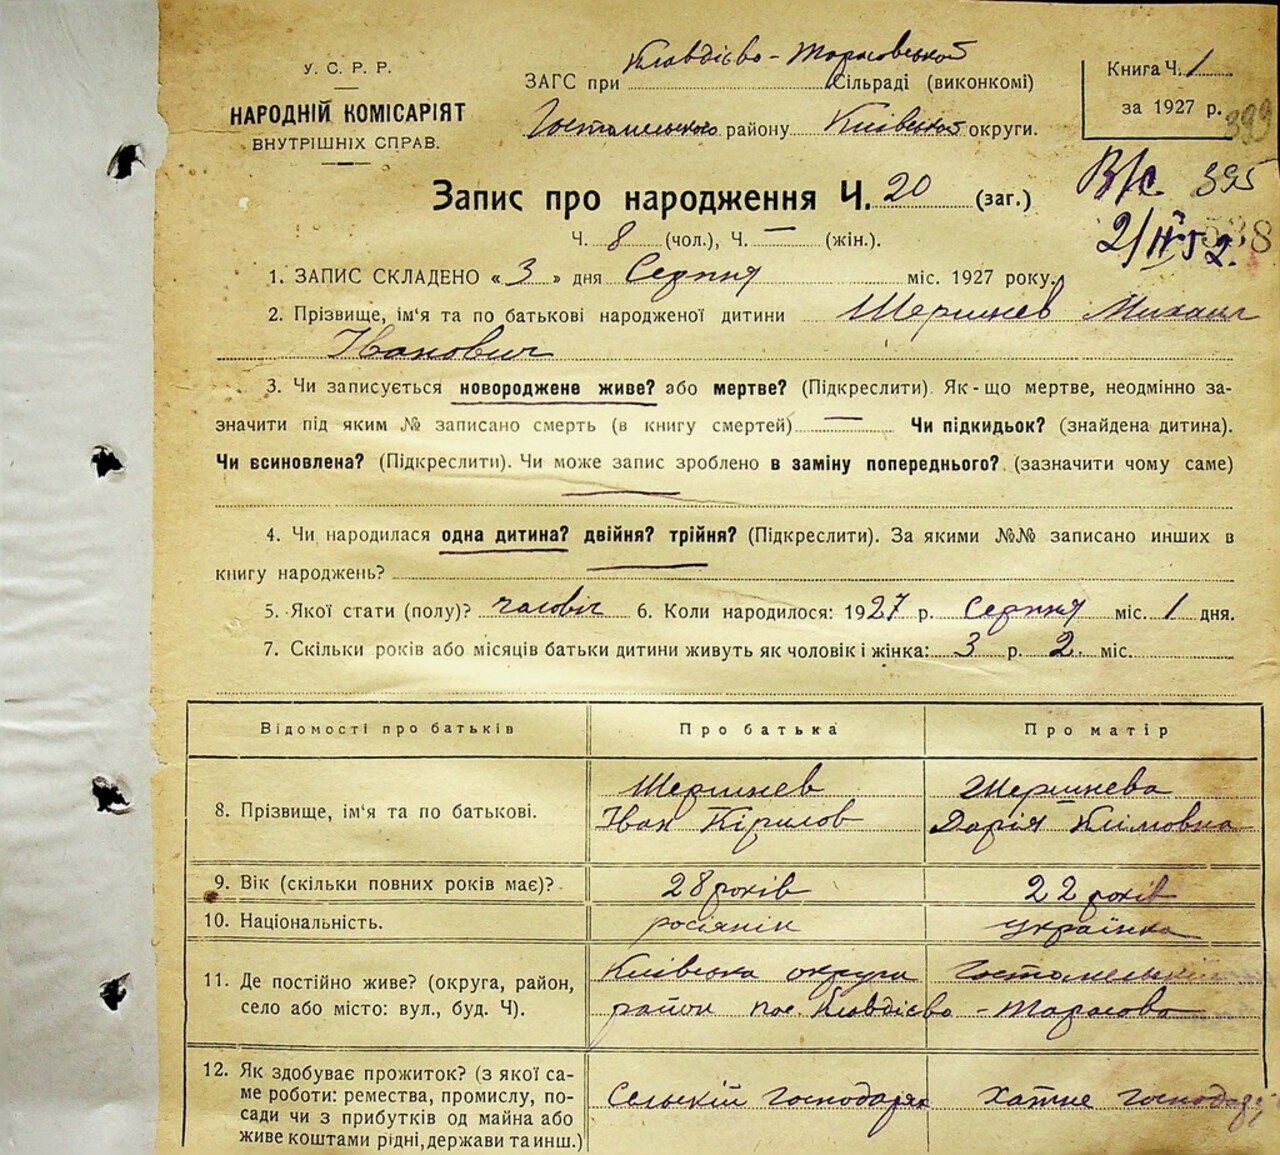 Клавдієво-Тарасовській
У. С. Р. Р.
ЗАГС при Сільраді (виконкомі)
Книга Ч. 1
НАРОДНІЙ КОМІСАРІЯТ
ВНУТРІШНІХ СПРАВ.
Гостомельського району Київської округи.
за 1927 р.
399
Запис про народження Ч. 20 (заг.)
В/с. 395
Ч. 8 (чол.), Ч. — (жін.).
2/IV 52.
538
1. ЗАПИС СКЛАДЕНО «3» дня Серпня міс. 1927 року.
2. Прізвище, ім'я та по батькові народженої дитини Шершнев Михаил
Іванович
3. Чи записується новороджене живе? або мертве? (Підкреслити). Як-що мертве, неодмінно за-
значити під яким № записано смерть (в книгу смертей) — Чи підкидьок? (знайдена дитина).
Чи всиновлена? (Підкреслити). Чи може запис зроблено в заміну попереднього? (зазначити чому саме)
—
4. Чи народилася одна дитина? двійня? трійня? (Підкреслити). За якими №№ записано инших в
книгу народжень? —
5. Якої стати (полу)? чоловіч 6. Коли народилося: 1927 р. Серпня міс. 1 дня.
7. Скільки років або місяців батьки дитини живуть як чоловік і жінка: 3 р. 2. міс.
Відомості про батьків Про батька Про матір
8. Прізвище, ім'я та по батькові. Шершнев Шершнева
Іван Кірилов Дарія Клімовна
9. Вік (скільки повних років має)? 28 років 22 років
10. Національність. росіянін українка
11. Де постійно живе? (округа, район, Київська округа Гостомельській
село або місто: вул., буд. Ч). район пос. Клавдієво-Тарасова
12. Як здобуває прожиток? (з якої са-
ме роботи: ремества, промислу, по- Сельскій господаряк Хатне господар
сади чи з прибутків од майна або
живе коштами рідні, держави та инш.)